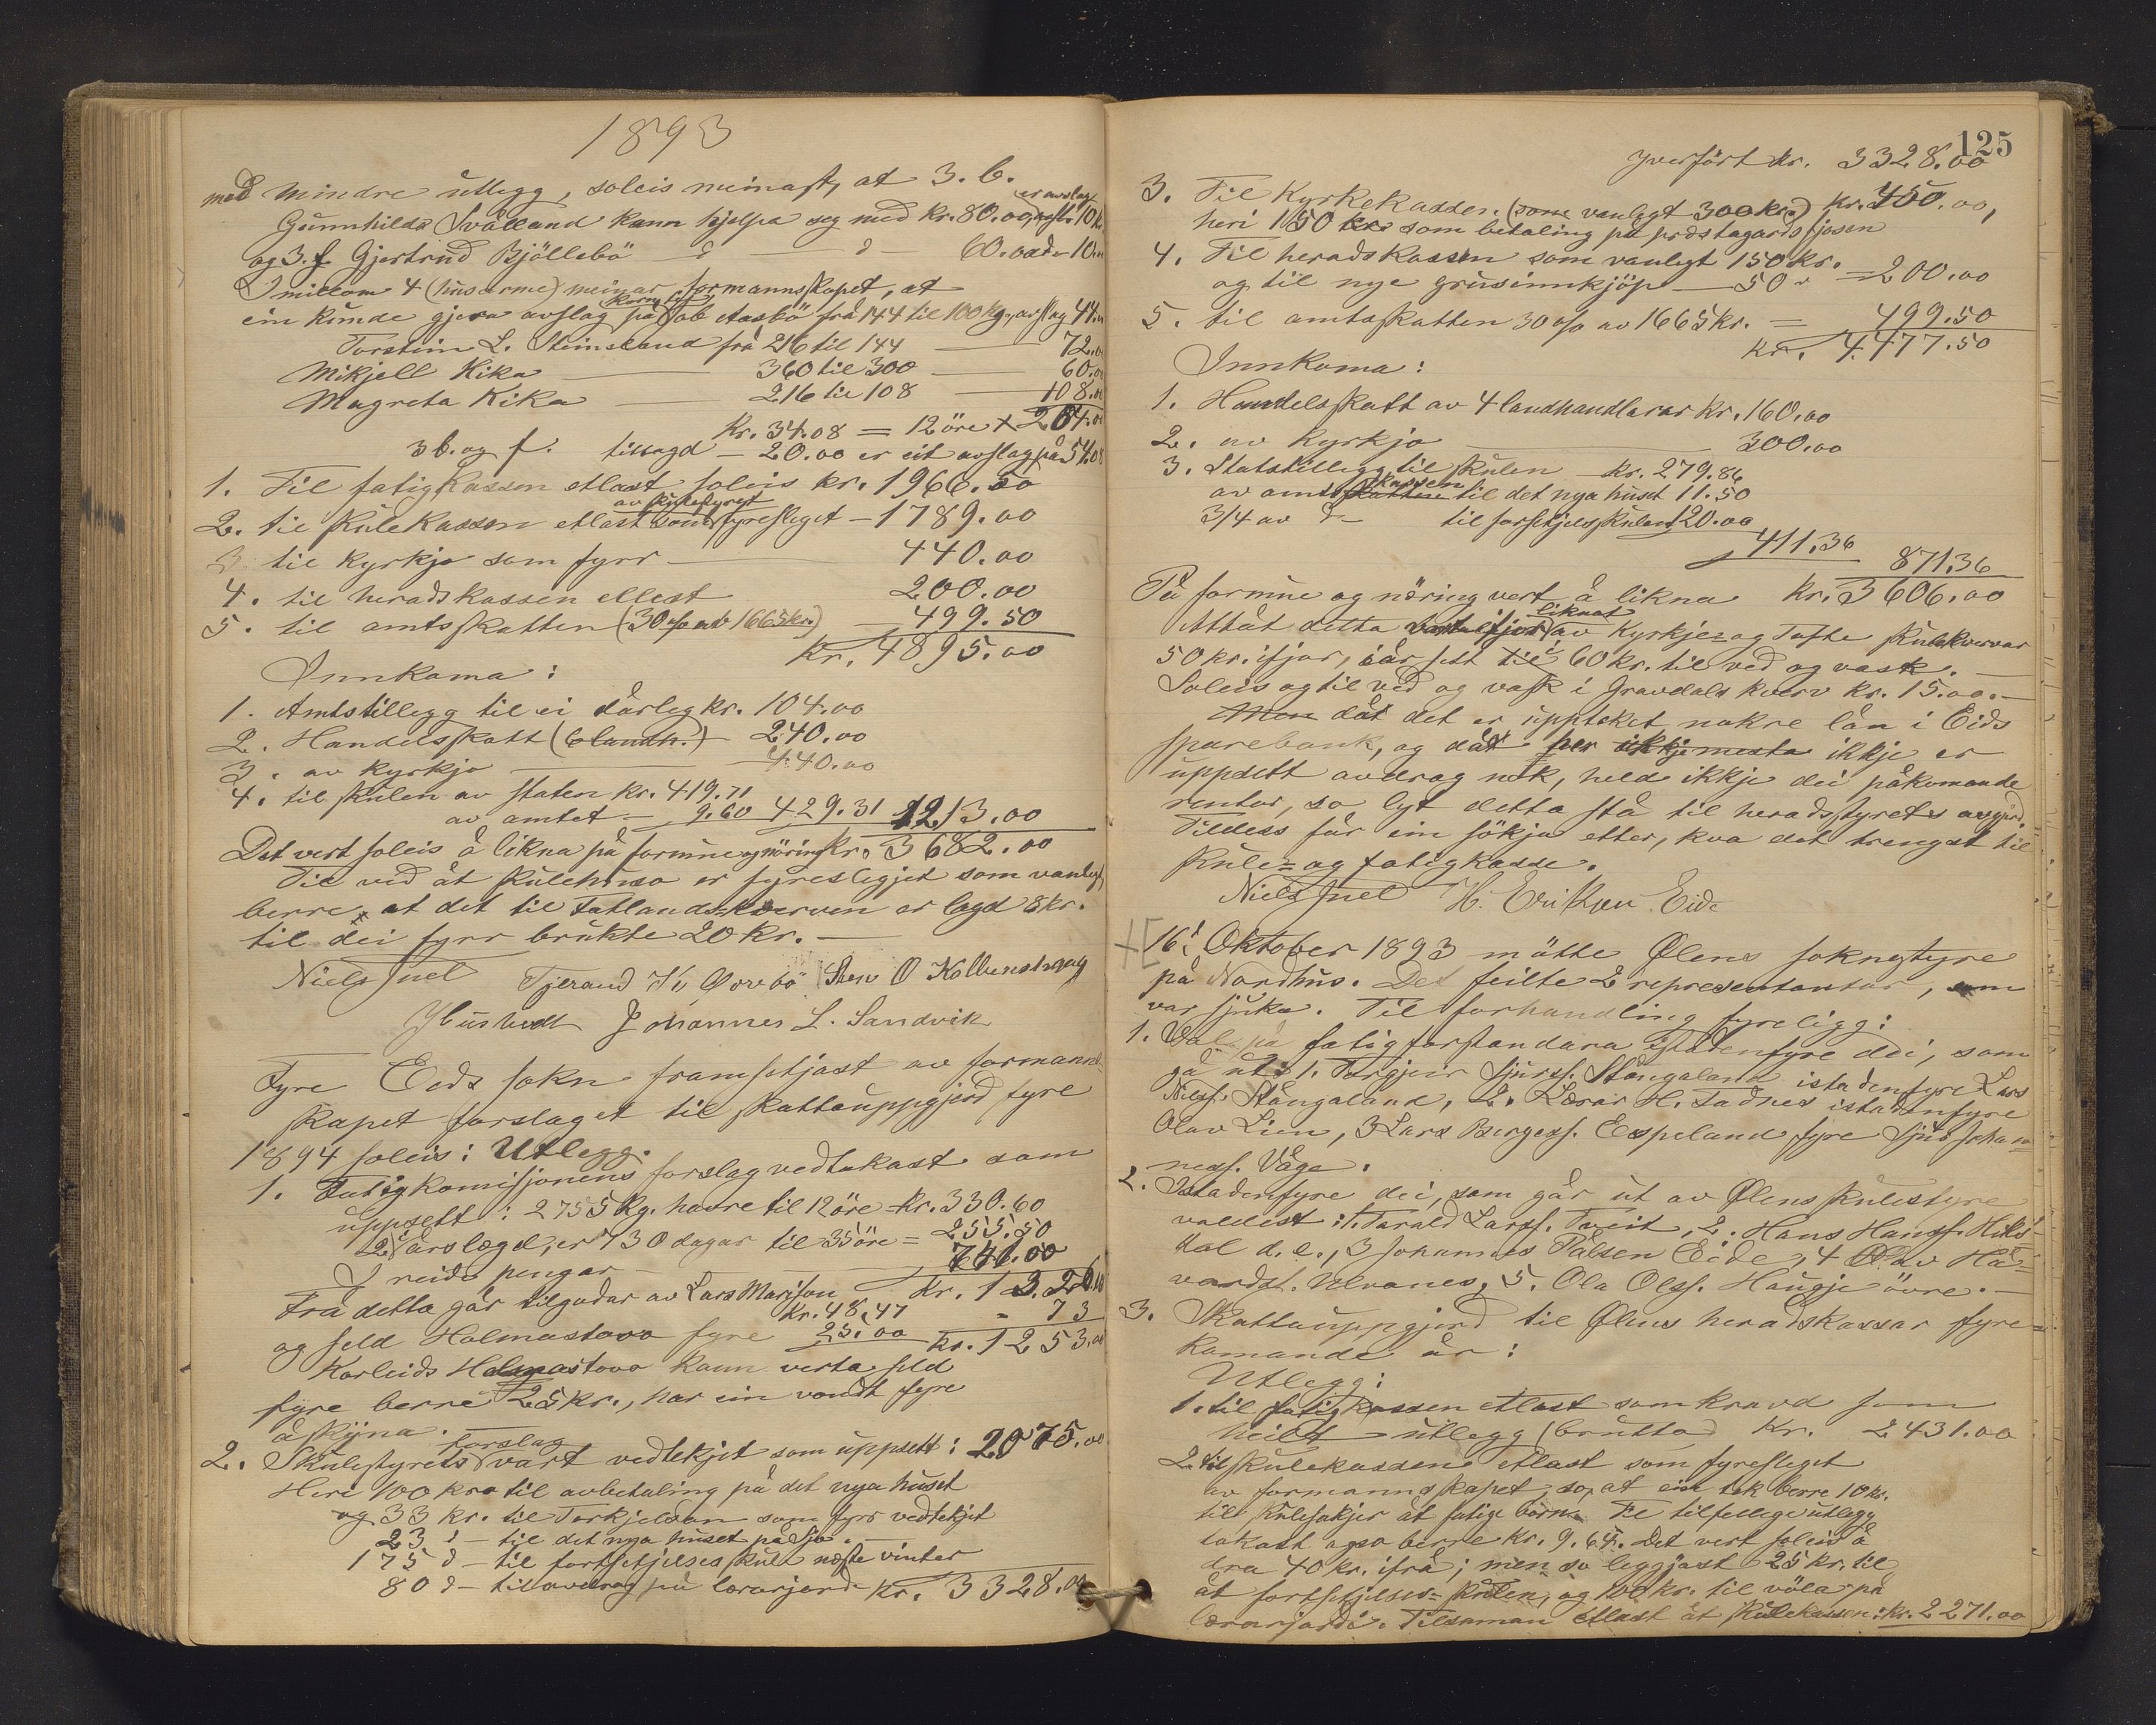 1893
med mindre utlegg, soleis meinast, at 3. b.
er avslag
Gunnhilda Svålland kann hjelpa seg med Kr. 80.00, 10 kr
og 3. f. Gjertrud Bjöllebö — d — d — 60.00 d— 10.00
Imillom 4 (husarme) meinar formannskapet, at
korn til
ein kunde gjera avslag på Job Aasbö frå 144 til 100 kg., avslag 44.
Torstein L. Steinsland frå 216 til 144 — 72.00
Mikjell Kika — 360 til 300 — 60.00
Magreta Kika — 216 til 108 — 108.00
Kr. 34.08 = 12 öre × 284.00
3 b. og f. tillagd — 20.00 er eit avslag på 54.08
1. Til fatigkassen etlast soleis kr. 1966.50
av skulestyret
2. til skulekassen etlast som fyresleget — 1789.00
3 til kyrkje som fyrr — 440.00
4. til heradskassen ellest 200.00
5. til amtsskatten (30 % av 1665 kr.) — 499.50
Kr. 4895.00
Innkoma:
1. Amtstillegg til ei dårleg kr. 104.00
2. Handelsskatt (6 landh.) — 240.00
3. av kyrkje — 440.00
4. til skulen av staten kr. 419.71
av amtet — 9.60 429.31 1213.00
Det vert soleis å likna på formue og näring Kr. 3682.00
Til ved åt skulehusa er fyreslegjet som vanlegt,
berre at det til Tatlandskverven er lagd 8 kr.
til dei fyrr brukte 20 kr. —
Niels Juel Tjerand K. Ørvbö Sten O Kolbenstveg
Y Hustvedt Johannes L. Sandvik
Fyre Eids sokn framsetjast av formann-
skapet forslaget til skattauppgjerd fyre
1894 soleis: Utlegg.
1. Fatigkomissjonens forslag vedtakast som
uppsett: 2755 kg. havre til 12 öre = kr. 330.60
2) årslægd, er 730 dagar til 35 öre = 255.50
I reide pengar — 740.00
Frå detta går tilgodar av Lars Marison Kr. 1 326.10
Kr. 48.47 = 73
og seld Holmastova fyre 25.00 Kr. 1253.00
Korleids Holmastova kann verta seld
fyre berre 25 kr., har ein vondt fyre
å skjyna.
forslag
2. Skulestyrets vart vedtekjet som uppsett: 2075.00
Heri 100 kr til avbetaling på det nya huset
og 33 kr. til Torkjeldsen som fyrr vedtekjit
23 d — til det nya huset på Sjo.
175 d — til fortsetjelsesskule næste vinter
80 d — til avdrag på lærarjord Kr. 3328.00
125
yverfört kr. 3328.00
3. Til Kyrkekassen (som vanlegt 300 kr.) Kr. 450.00,
heri 150 kr som betaling på prestagardsfjosen
4. Til heradskassen som vanlegt 150 kr.
og til nye grusinnkjöp — 50 " = 200.00
5. til amtsskatten 30 % av 1665 kr. = 499.50
kr. 4477.50
Innkoma:
1. Handelsskatt av 4 landhandlarar Kr. 160.00
2. av kyrkjo — 300.00
3. Statstillegg til skulen — kr. 279.86
kassen
av amtsskatten til det nya huset 11.50
3/4 av d — til forsetjelsskulen 120.00
411.36 871.36
På formue og näring vert å likna Kr. 3606.00
liknat
Attåt detta vart ifjor av Kyrkje= og Tufte skulekvervar
50 kr. ifjor, iår sett til 60 kr. til ved og vask. —
Soleis og til ved og vask i Gravdals kverv kr. 15.00. —
Men då det er uppteket nokre lån i Eids
sparebank, og då her ikkje mesta ikkje er
uppsett avdrag nok, held ikkje dei påkomande
rentor, so lyt detta stå til heradsstyrets avgjerd.
Tildess får ein sökja etter, kva det trengst til
skule= og fatigkasse.
Niels Juel H. Eriksen Eide
16d Oktober 1893 mötte Ølens soknestyre
på Nordhus. Det feilte 2 representantar, som
var sjuke. Til forhandling fyreligg:
1. Val på fatigforstandara istadenfyre dei, som
gå ut: 1. Torgjeir Sjurss. Stångaland istadenfyre Lars
Nilss. Stångaland, 2. Lærar H. Fadnes istadenfyre
Olav Lien, 3 Lars Borgess. Espeland fyre Sjur Johan-
ness. Våge.
2. Istadenfyre dei, som går ut av Ølens skulestyre
valdist: 1. Tarald Larss. Tveit, 2. Hans Hanss. Hiks-
dal d. e., 3 Johannes Pålsen Eide, 4 Olav Hå=
vardst. Ulvanes, 5. Ola Olss. Haugje övre. —
3. Skattauppgjerd til Ølens heradskassar fyre-
komande år:
Utlegg:
1. til fatigkassen etlast som kravd sum
heilt utlegg (brutto) Kr. 2431.00
2. til skulekassen etlast som fyresleget
av formannskapet, so, at ein tek berre 10 kr.
til skulesakjer åt fatige born. Til tilfellege utlegg
takast ogso berre kr. 9.64. Det vert soleis å
dra 40 kr. ifrå; men so leggjast 25 kr. til
åt fortsetjelses=skulen, og 100 kr. til völa på
lærarjordi. Tilsaman etlast åt skulekassen: kr. 2271.00